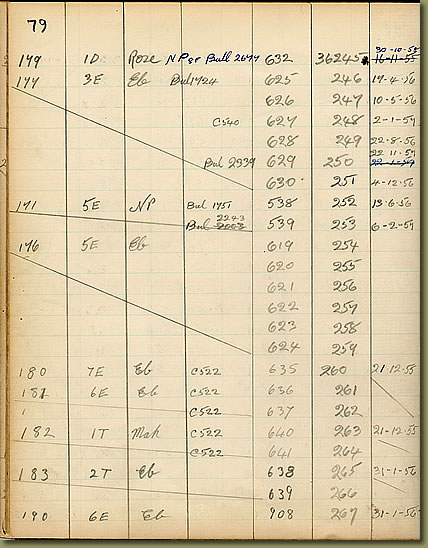 79
30-10-55
179 1D Roze NP & Bull 2677 632 36245 16-11-55
177 3E Eb Bul 1724 625 246 19-4-56
626 247 10-5-56
C540 627 248 2-1-59
628 249 22-8-56
22 11 57
Bul 2339 629 250
630 251 4-12-56
171 5E NP Bul 1751 538 252 13-6-56
2243
Bul 2003 539 253 6-2-57
176 5E Eb 619 254
620 255
621 256
622 257
623 258
624 259
180 7E Eb C522 635 260 21-12-55
181 6E Eb C522 636 261
C522 637 262
182 1T Mah C522 640 263 21-12-55
C522 641 264
183 2T Eb 638 265 31-1-56
639 266
190 6E Eb 908 267 31-1-56